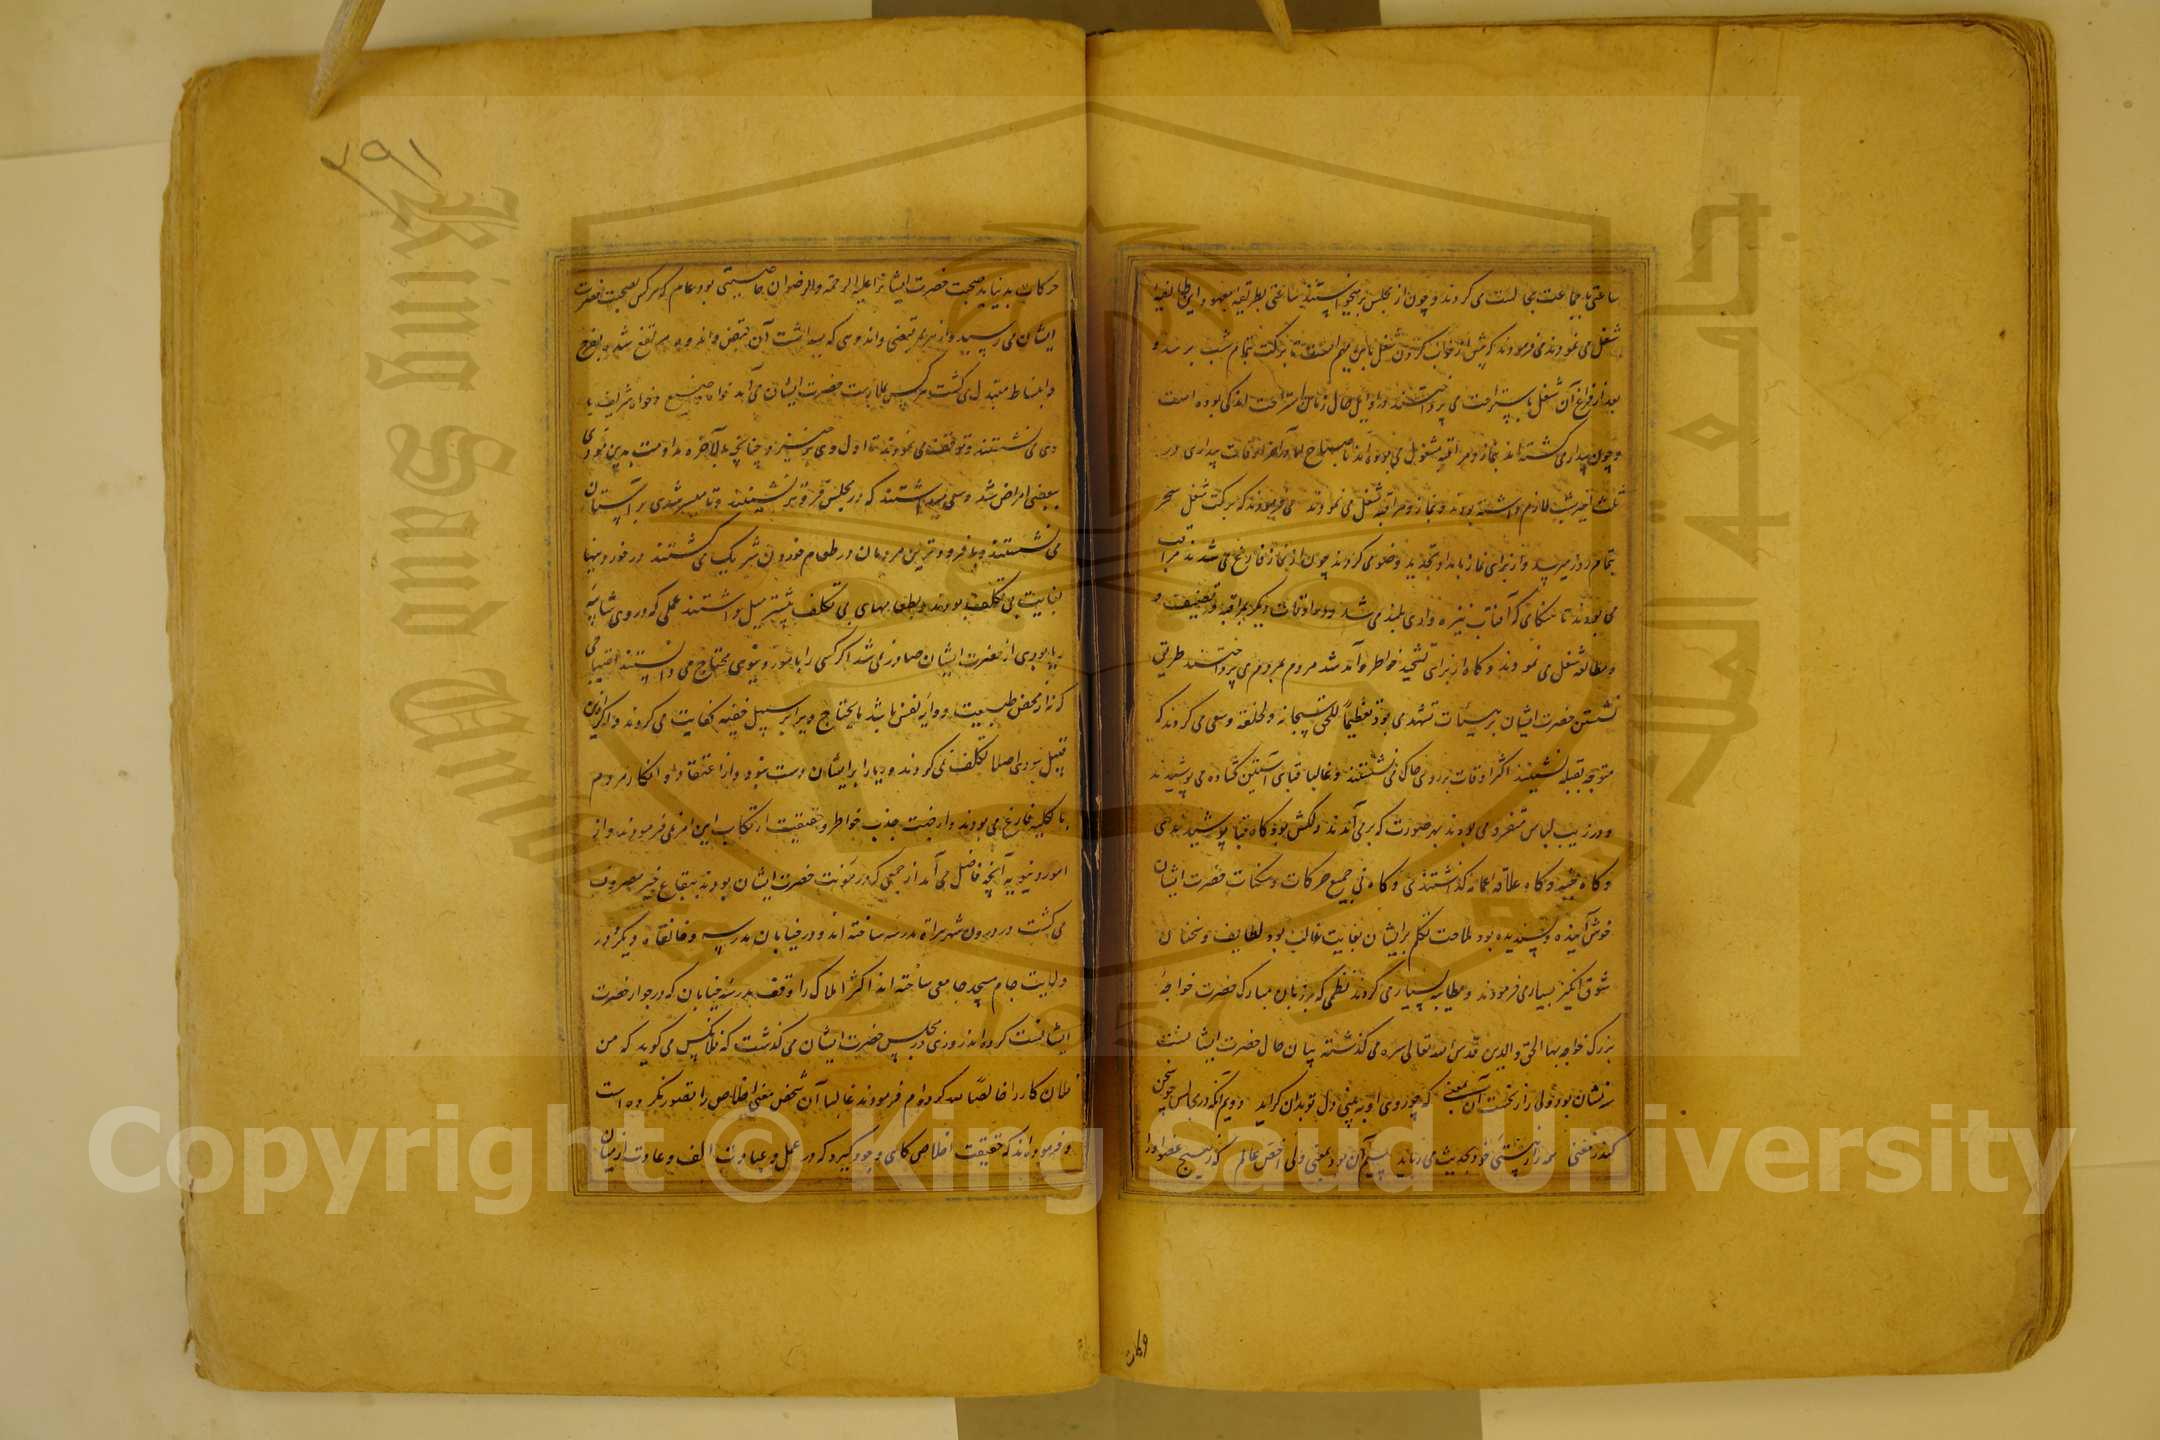 ساعتی با جماعت مجالست می کردند و چون از مجلس بر میخواستند ساعتی بطریقه معهود این طایفه
شغل می نمودند می فرمودند که پیش از خواب کردن شغل باین مهم است تا برکت بتمام شب برسد و
بعد از فراغ آن شغل باستراحت می پرداختند در اوایل حال زمان استراحت اندکی بوده است
و چون بیدار می گشته اند بنماز و مراقبه مشغول می بوده اند تا صباح اما در آخر اوقات بیداری در
ثلث اخیر شب لازم داشته بودند و بنماز و مراقبه شغل می نمودند می فرمودند که برکت شغل سحر
بتمام روز میرسد و از برای نماز بامداد تجدید وضو می کردند چون از نماز فارغ می شدند مراقب
می بودند تا هنگامی که آفتاب نیزه واری بلند می شد و در اوقات دیگر بمراقبه و تصنیف و
و مطالعه شغل می نمودند و گاه از برای تشحیذ خواطر و آمد شد مردم بمردم می پرداختند طریق
نشستن حضرت ایشان بر هیئات تشهد می بود تعظیماً للحق سبحانه و لخلقه و سعی می کردند که
متوجه بقبله نشینند اکثر اوقات بر روی خاک می نشستند و غالبا قبای آستین گشاده می پوشیدند
و در زیب لباس متفرد می بودند بهر صورت که بر می آمدند دلکش بود گاه قبا پوشیدندی
و گاه جبه و گاه علاقه عمامه گذاشتندی و گاه نی جمیع حرکات و سکنات حضرت ایشان
خوش آینده و پسندیده بود ملاحت تکلم بر ایشان بغایت غالب بود لطایف و سخنان
شوق انگیز بسیار می فرمودند و مطایبه بسیار می کردند نظمی که بر زبان مبارک حضرت خواجهٔ
بزرگ خواجه بها الحق والدین قدس الله تعالی سره می گذشته بیان حال حضرت ایشانست
سه نشان بود ولی را ز نخست آن بمعنی که چو روی او به بینی دل تو بدان گراید دویم آنکه در مجالس چو سخن
کند ز معنی همه را ز هستی خود بحدیث می رباید سیم آن بود بمعنی ولی اخص عالم که ز هیچ عضو او را
وکان
۲۹۱
حرکات بد نیاید صحبت حضرت ایشانرا علیه الرحمه والرضوان خاصیتی بود عام که هر کس بصحبت حضرت
ایشان می رسید و از هر ممر قبضی و اندوهی که میداشت آن قبض و اندوه مرتفع شده بفرح
و انبساط متبدل می گشت هر کس بملازمت حضرت ایشان می آمد خواه وضیع و خواه شریف با
وی می نشستند و توقف می نمودند تا اول وی برخیزد چنانچه بالآخره مداومت بدین مودی
ببعضی امراض شد و سعی میداشتند که در مجلس فروتر نشینند و تا میسر شدی بر آستان
می نشستند و با فرودترین مردمان در طعام خوردن شریک می گشتند در خوردنیها
بغایت بی تکلف بودند و بطعامهای بی تکلف بیشتر میل داشتند عملی که در وی شایبه
ریا بودی از حضرت ایشان صادر نمی شد اگر کسی را بامور دنیوی محتاج می دانستند احتیاجی
که نه از محض طبیعت و دایه نفس باشد مایحتاج ویرا بر سبیل خفیه کفایت می کردند و اگر ازین
قبیل نبودی اصلا تکلف نمی کردند و ریا را بر ایشان دست نبود و از اعتقاد و انکار مردم
بالکلیه فارغ می بودند و از جهت جذب خواطر و حقیقت ارتکاب این امر می فرمودند و از
امور دنیویه آنچه فاضل می آمد از جمعی که در مؤنت حضرت ایشان بودند ببقاع خیر مصروف
می گشت در درون شهر هراة مدرسه ساخته اند و در خیابان مدرسه و خانقاه دیگر و در
ولایت جام مسجد جامعی ساخته اند اکثر املاک را وقف مدرسه خیابان که در جوار حضرت
ایشانست کرده اند روزی در مجلس حضرت ایشان می گذشت که فلانکس می گوید که من
فلان کار را خالصاً لله کرده ام فرمودند غالبا آن شخص معنی اخلاص را تصور نکرده است
و فرموده اند که حقیقت اخلاص گاهی وجود گیرد که در عمل و عبادت الف و عادت از میان
Copyright © King Saud University